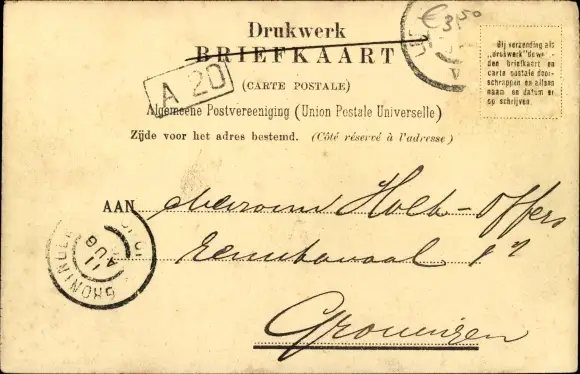 Drukwerk
BRIEFKAART
(CARTE POSTALE)
Algemeene Postvereeniging (Union Postale Universelle)
Zijde voor het adres bestemd. (Côté réservé à l'adresse)
A 20
€ 3,50
Bij verzending als
"drukwerk"
den briefkaart en
carte postale door-
schrappen en alleen
naam en datum er
op schrijven.
AAN Mevrouw Holk-Offers
Groningen
GRONINGEN
11
AUG